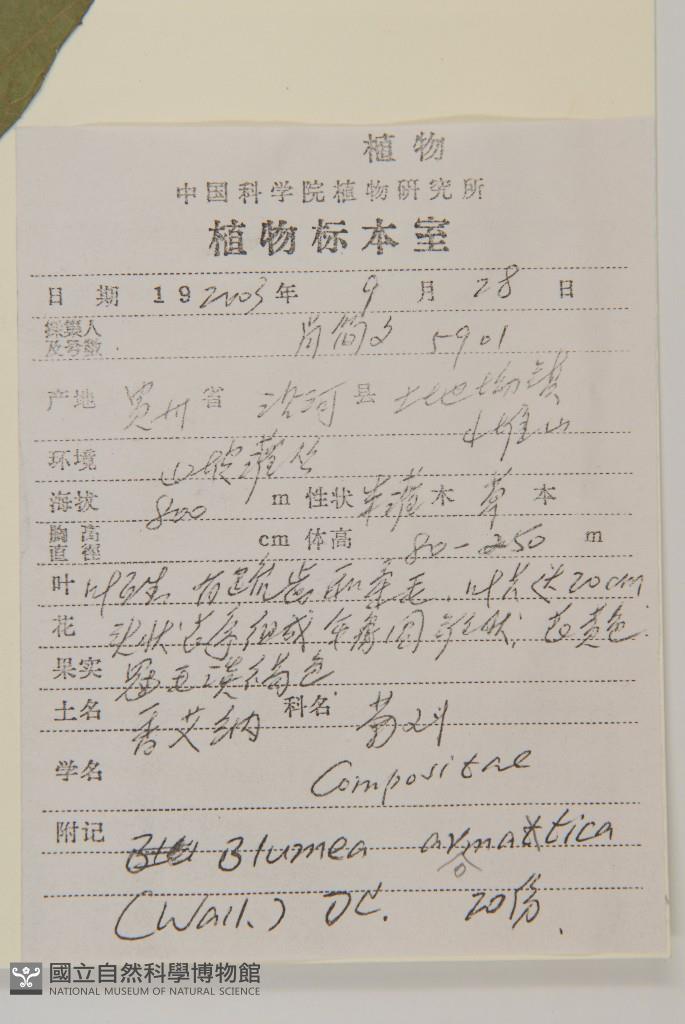 植物
中国科学院植物研究所
植物标本室
日期 19 2003 年 9 月 28 日
採集人及号数 肖简文 5901
产地 贵州省 沿河县 土地坳镇
环境 山坡灌丛
海拔 800 m 性状 半灌木 草本
胸高直徑 cm 体高 80-250 m
叶 叶互生, 有 齿和 毛, 叶长达20cm
花 头状花序组成 圆锥状, 花黄色.
果实 冠毛淡褐色.
土名 香艾纳 科名 菊科
学名 Compositae
附记 Blumea aromatica
(Wall.) DC. 20份.
國立自然科學博物館
NATIONAL MUSEUM OF NATURAL SCIENCE